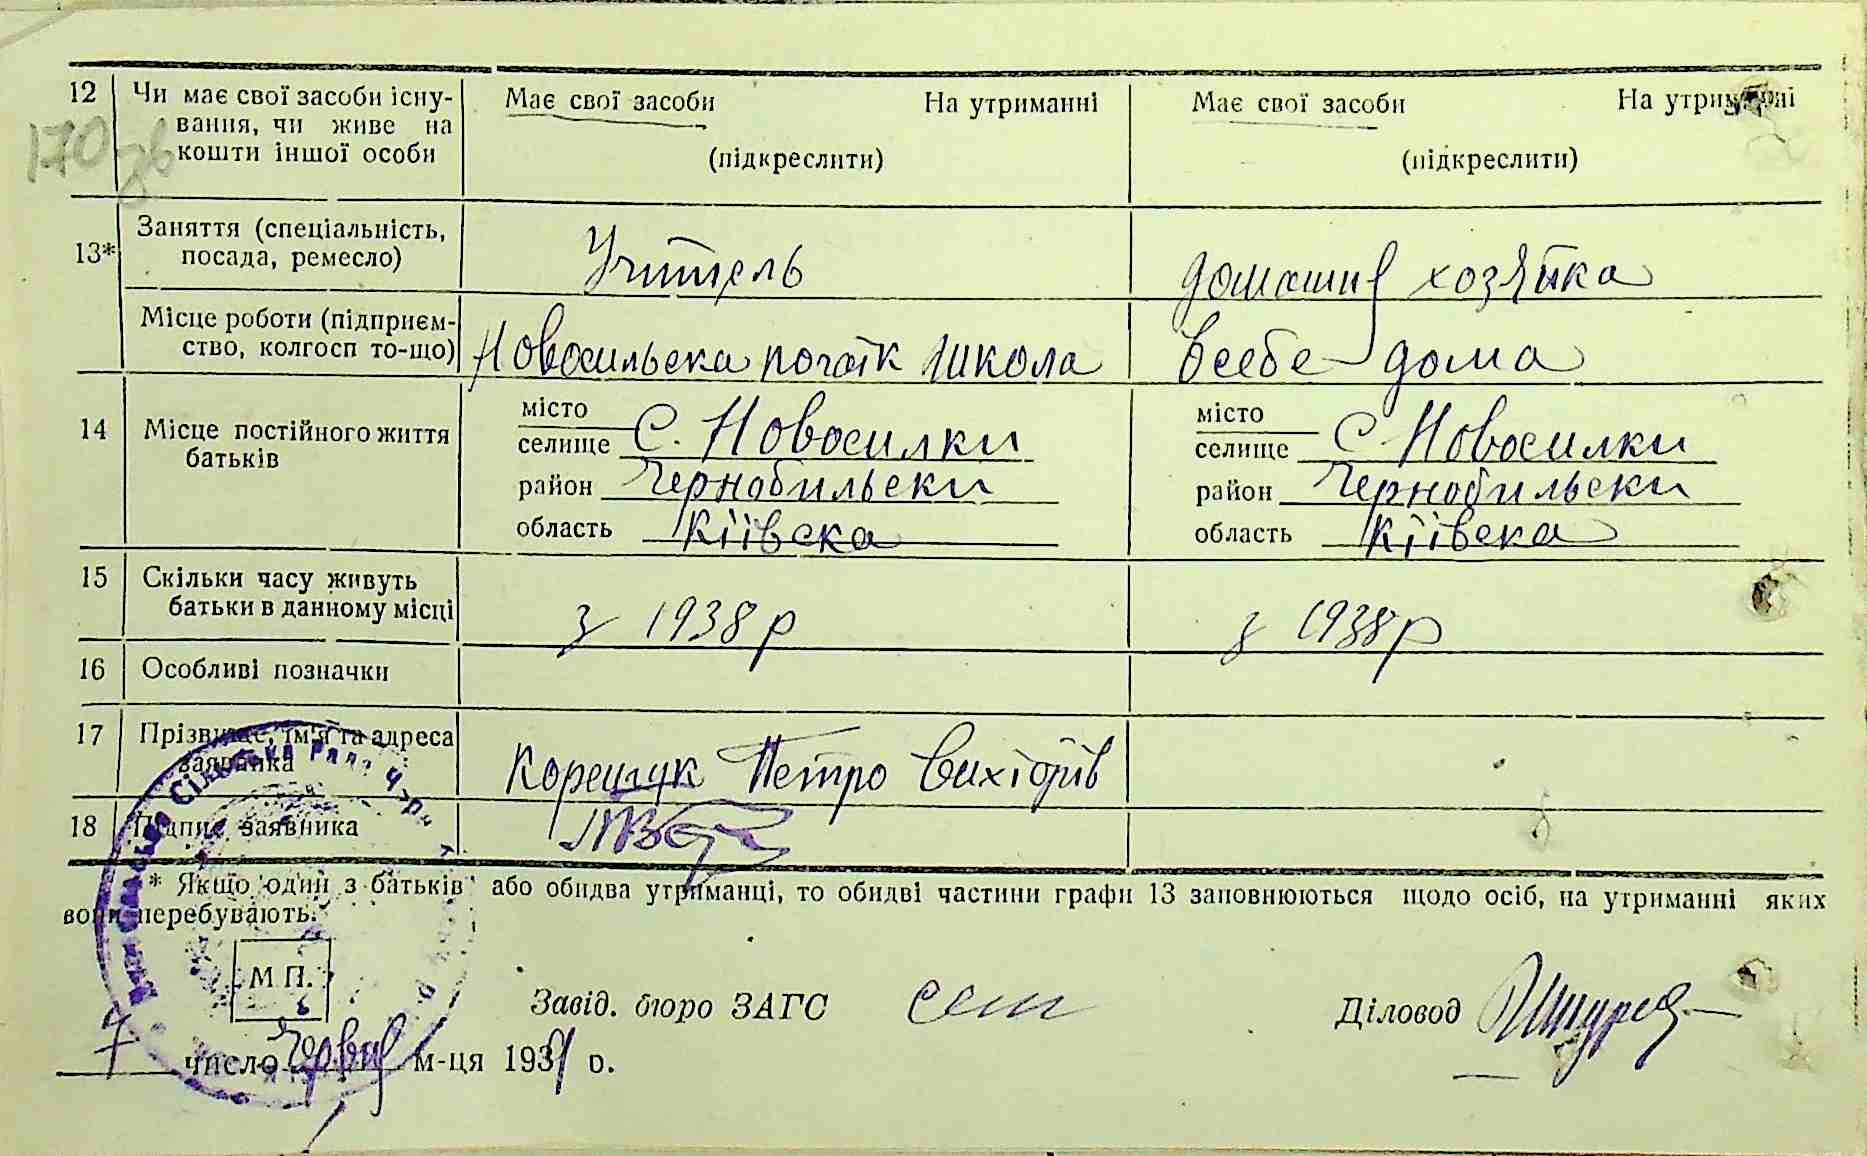 12 Чи має свої засоби існу- Має свої засоби На утриманні Має свої засоби На утриманні
вання, чи живе на
кошти іншої особи (підкреслити) (підкреслити)
170 зв
Заняття (спеціальність,
13* посада, ремесло) Учитель домашня хозяйка
Місце роботи (підприєм-
ство, колгосп то-що) Новосильска початк школа всебе дома
місто місто
14 Місце постійного життя селище С. Новосилки селище С. Новосилки
батьків район Чернобильски район Чернобильски
область Київска область Київска
15 Скільки часу живуть
батьки в данному місці з 1938 р з 1938 р
16 Особливі позначки
17 Прізвище, ім'я та адреса
заявника Корещук Петро Вихторів
18 Підпис заявника
* Якщо один з батьків або обидва утриманці, то обидві частини графи 13 заповнюються щодо осіб, на утриманні яких
вони перебувають.
Сільська Рада
М П.
Завід. бюро ЗАГС Діловод
7 число м-ця 19 р.